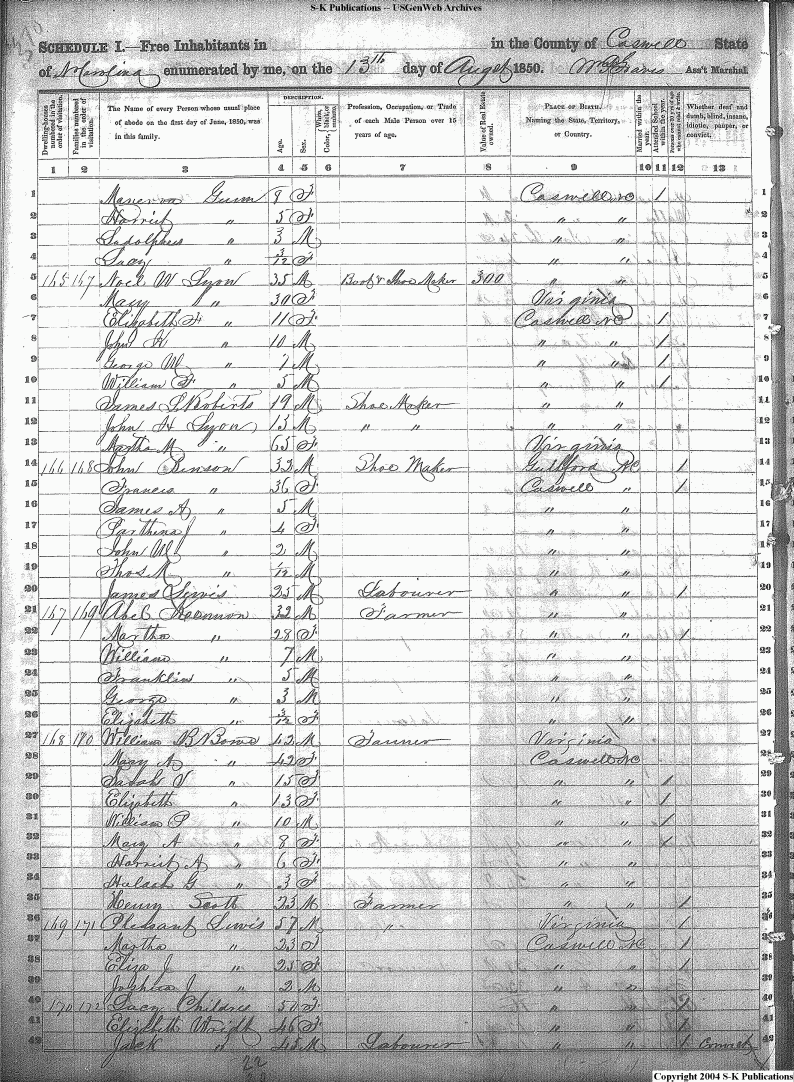 S-K Publications -- USGenWeb Archives
SCHEDULE I.—Free Inhabitants in in the County of Caswell State
of N Carolina enumerated by me, on the 13th day of Augst 1850. Ass't Marshal
Dwelling-houses numbered in the order of visitation.
Families numbered in the order of visitation.
The Name of every Person whose usual place of abode on the first day of June, 1850, was in this family.
DESCRIPTION.
Age.
Sex.
Profession, Occupation, or Trade of each Male Person over 15 years of age.
Value of Real Estate owned.
PLACE OF BIRTH. Naming the State, Territory, or Country.
Married within the year.
Attended School within the year.
Whether deaf and dumb, blind, insane, idiotic, pauper, or convict.
1 2 3 4 5 6 7 8 9 10 11 12 13
1 Gunn 9 F Caswell NC / 1
2 Harriet " 5 F " " 2
3 " 3 M " " 3
4 " 3/12 F " " 4
5 165 167 Noel W Lyon 35 M Boot & Shoe Maker 300 " " 5
6 Mary " 30 F Virginia 6
7 Elizabeth " 11 F Caswell NC / 7
8 John " 10 M " " / 8
9 George W " 7 M " " / 9
10 William F " 5 M " " / 10
11 James Roberts 19 M Shoe Maker " " 11
12 John H Lyon 13 M " " " " 12
13 Martha M " 65 F Virginia 13
14 166 168 John Benson 32 M Shoe Maker Guilford NC / 14
15 Frances " 36 F Caswell " / 15
16 James A " 5 M " " 16
17 Parthena J " 4 F " " 17
18 John W " 2 M " " 18
19 Thos M " 1/12 M " " 19
20 James Lewis 25 M Labourer " " / 20
21 167 169 Abel 32 M Farmer " " 21
22 Martha " 28 F " " / 22
23 William " 7 M " " 23
24 Franklin " 5 M " " 24
25 George " 3 M " " 25
26 Elizabeth " 3/12 F " " 26
27 168 170 William B 42 M Farmer Virginia 27
28 Mary A " 42 F Caswell NC 28
29 Sarah V " 15 F " " / 29
30 Elizabeth " 13 F " " / 30
31 William P " 10 M " " / 31
32 Mary A " 8 F " " / 32
33 Harriet A " 6 F " " 33
34 G " 3 F " " 34
35 Henry Scott 23 M Farmer " " / 35
36 169 171 Pleasant Lewis 57 M " Virginia / 36
37 Martha " 23 F Caswell NC / 37
38 Eliza J " 25 F " " / 38
39 J " 2 M " " 39
40 170 172 Lucy Childres 50 F " " / 40
41 Elizabeth 46 F " " / 41
42 Jack " 45 M Labourer " " / Convict 42
Copyright 2004 S-K Publications